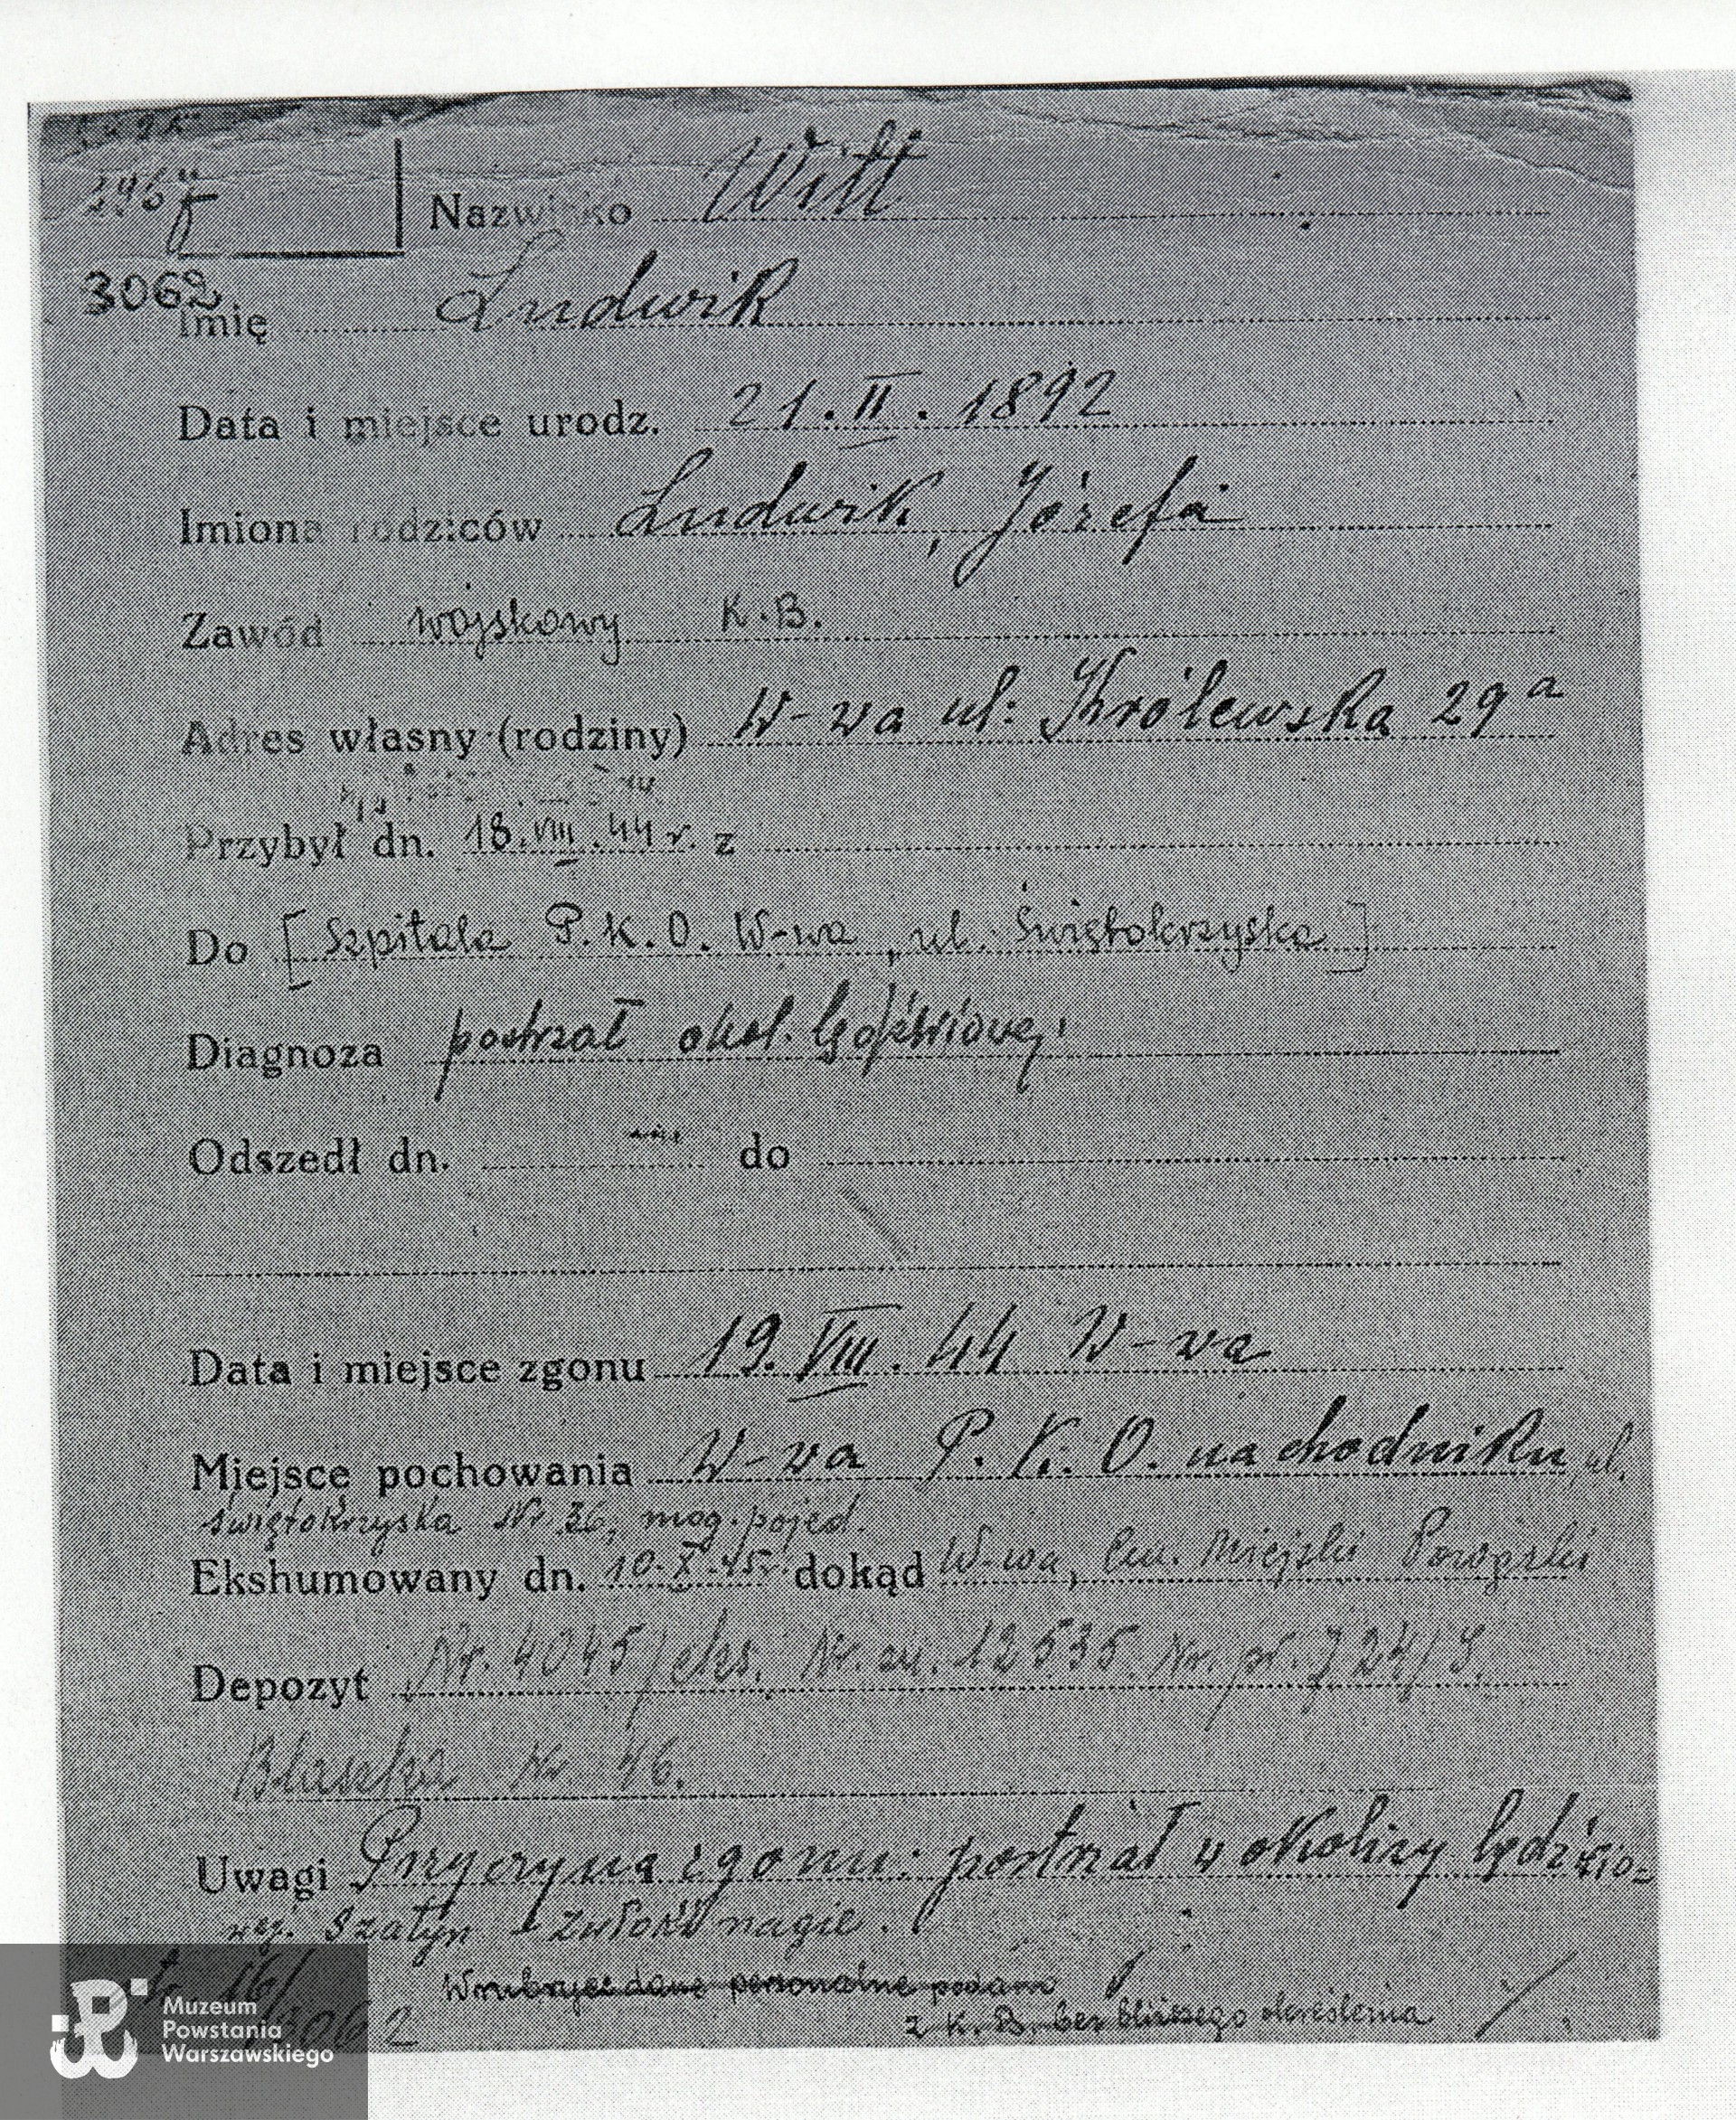 296
3062
Nazwisko Witt
Imię Ludwik
Data i miejsce urodz. 21.II.1892
Imiona rodziców Ludwik, Józefa
Zawód wojskowy K.B.
Adres własny (rodziny) W-wa ul: Królewska 29a
Przybył dn. 18.VIII.44 r. z
Do [Szpitala P.K.O. W-wa, ul. Świętokrzyska]
Diagnoza postrzał okol. lędźwiowej
Odszedł dn. do
Data i miejsce zgonu 19.VIII.44 W-wa
Miejsce pochowania W-wa P.K.O. na chodniku, ul.
Świętokrzyska Nr 36, mog. pojed.
Ekshumowany dn. 10.X.45r. dokąd W-wa, Cm. Miejski Powązki
Depozyt Nr. 4045/eks. Nr. 12535 Nr. pr. 724/
Blaszka Nr 46.
Uwagi Przyczyna zgonu: postrzał w okolicy lędźwio-
wej. Szatyn - zwłoki nagie.
dane personalne podano
z K.B. bez bliższego określenia
16/
3062
Muzeum
Powstania
Warszawskiego